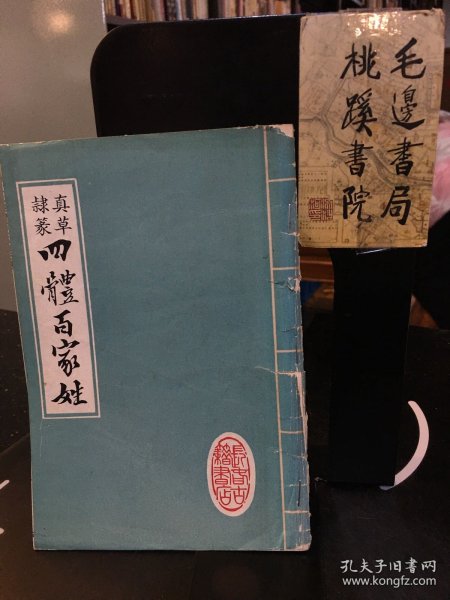 毛邊書局
桃蹊書院
真草
隸篆
四體百家姓
長春古
籍書店
孔夫子旧书网
www.kongfz.com